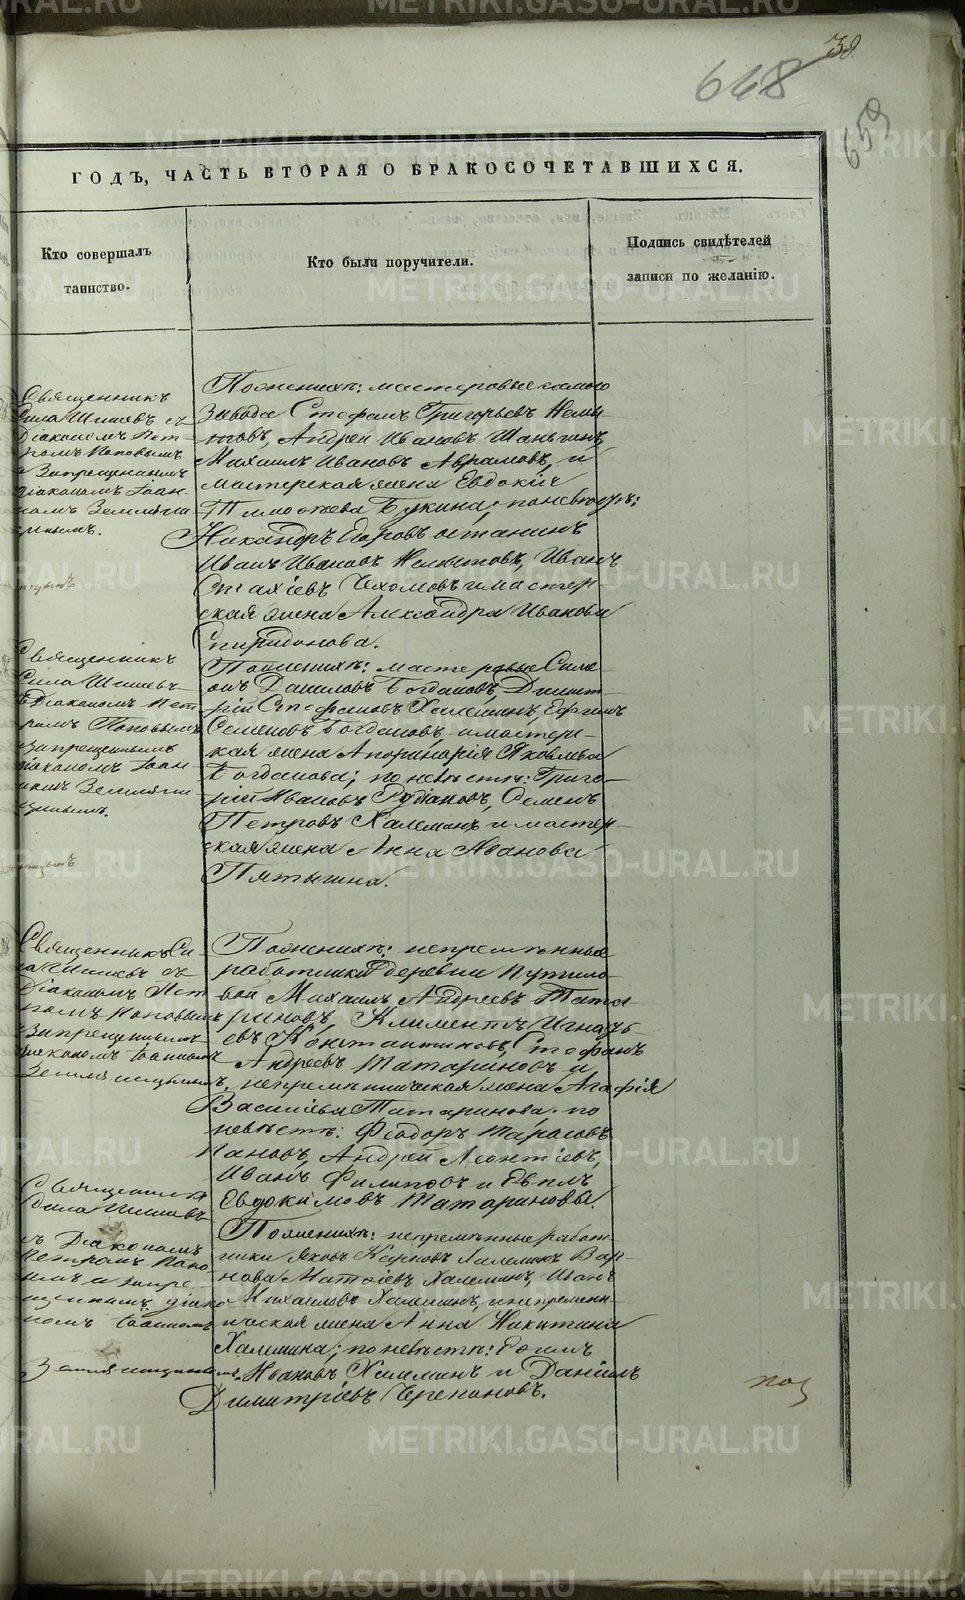 38
648
659
ГОДЪ, ЧАСТЬ ВТОРАЯ О БРАКОСОЧЕТАВШИХСЯ.
Кто совершалъ
таинство.
Кто были поручители.
Подпись свидѣтелей
записи по желанію.
Священникъ
Сила Шишевъ съ
Діакономъ Пет-
ромъ Поповымъ
и Запрещеннымъ
діакономъ Іоан-
номъ
По женихѣ: мастеровые самого
Завода Стефанъ Григорьевъ
Андрей Ивановъ Шаньгинъ,
Михаилъ Ивановъ Аврамовъ, и
мастерская жена Евдокія
Тимофеева Букина, по невѣстѣ:
Никандръ Егоровъ Останинъ
Иванъ Ивановъ Иванъ
Чехомовъ и мастер-
ская жена Александра Иванова
Спиридонова.
Священникъ
Сила Шишевъ
съ Діакономъ Пет-
ромъ Поповымъ
и запрещеннымъ
діакономъ Іоан-
номъ
По женихѣ: мастеровые
Даниловъ Богдановъ, Димит-
рій Стефановъ Халеминъ, Ефимъ
Семеновъ Богдановъ, и мастер-
ская жена Яковлева
Богданова; по невѣстѣ: Григо-
рій Ивановъ Семенъ
Петровъ Халеминъ и мастер-
ская жена Анна Иванова
Пятыгина.
Священникъ Си-
ла Шишевъ съ
Діакономъ Пет-
ромъ Поповымъ
и запрещеннымъ
діакономъ Іоанномъ
По женихѣ: непремѣнные
работники деревни Путило-
вой Михаилъ Андреевъ Тата-
риновъ, Климентъ Игнать-
евъ Константиновъ, Стефанъ
Андреевъ Татариновъ и
непремѣнническая жена Агафія
Васильева Татаринова; по
невѣстѣ: Феодоръ Тарасовъ
Пановъ, Андрей Леонтіевъ,
Иванъ Филиповъ и Евплъ
Евдокимовъ Татариновы.
Священникъ
Сила Шишевъ
съ Діакономъ
Петромъ Попо-
вымъ и запре-
щеннымъ діако-
номъ Іоанномъ
По женихѣ: непремѣнные работ-
ники Яковъ Карповъ Халеминъ
Халеминъ, Иванъ
Михаиловъ Халеминъ, и непремѣн-
ническая жена Анна Никитина
Халемина; по невѣстѣ:
Ивановъ Халеминъ и Даніилъ
Димитріевъ Черепановъ.
METRIKI.GASO-URAL.RU